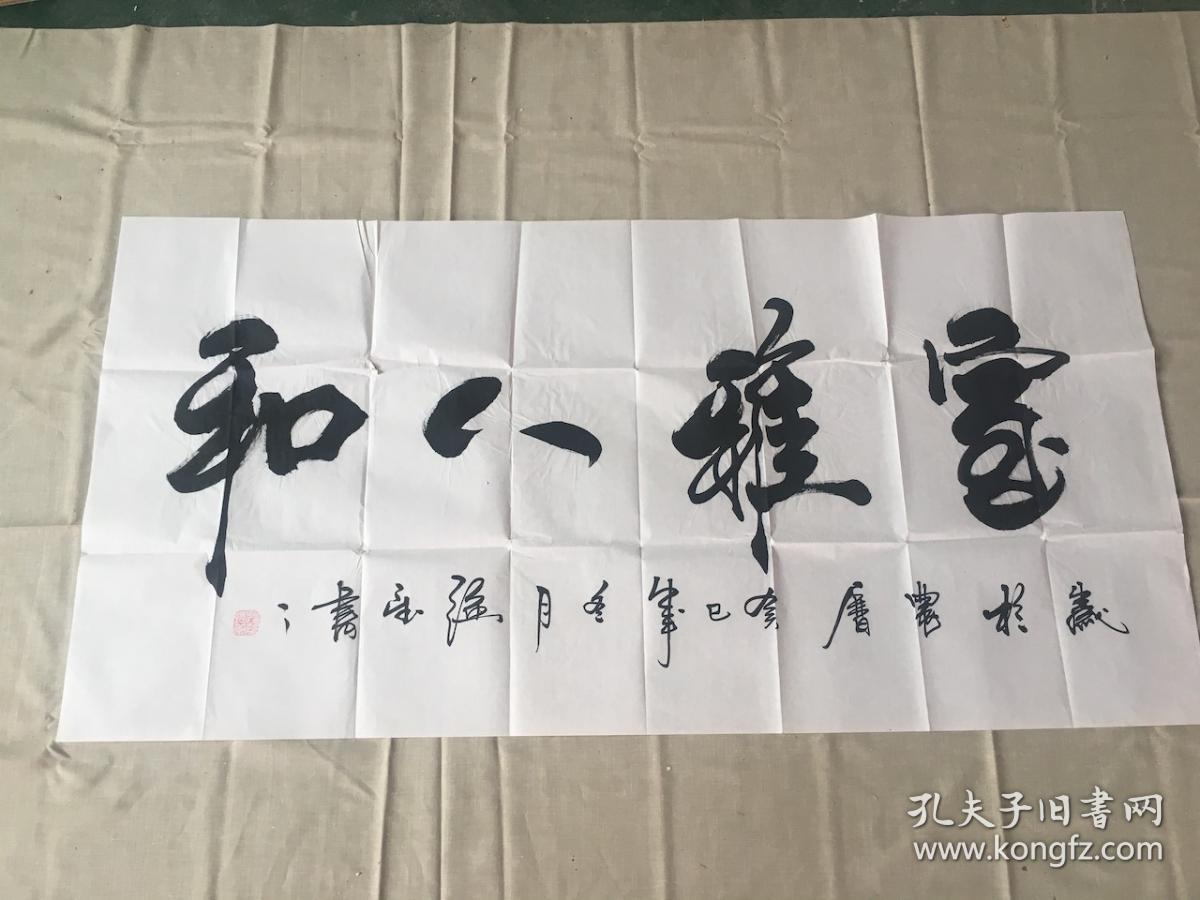 室雅人和
歲於農曆癸巳年冬月書
孔夫子旧書网
www.kongfz.com